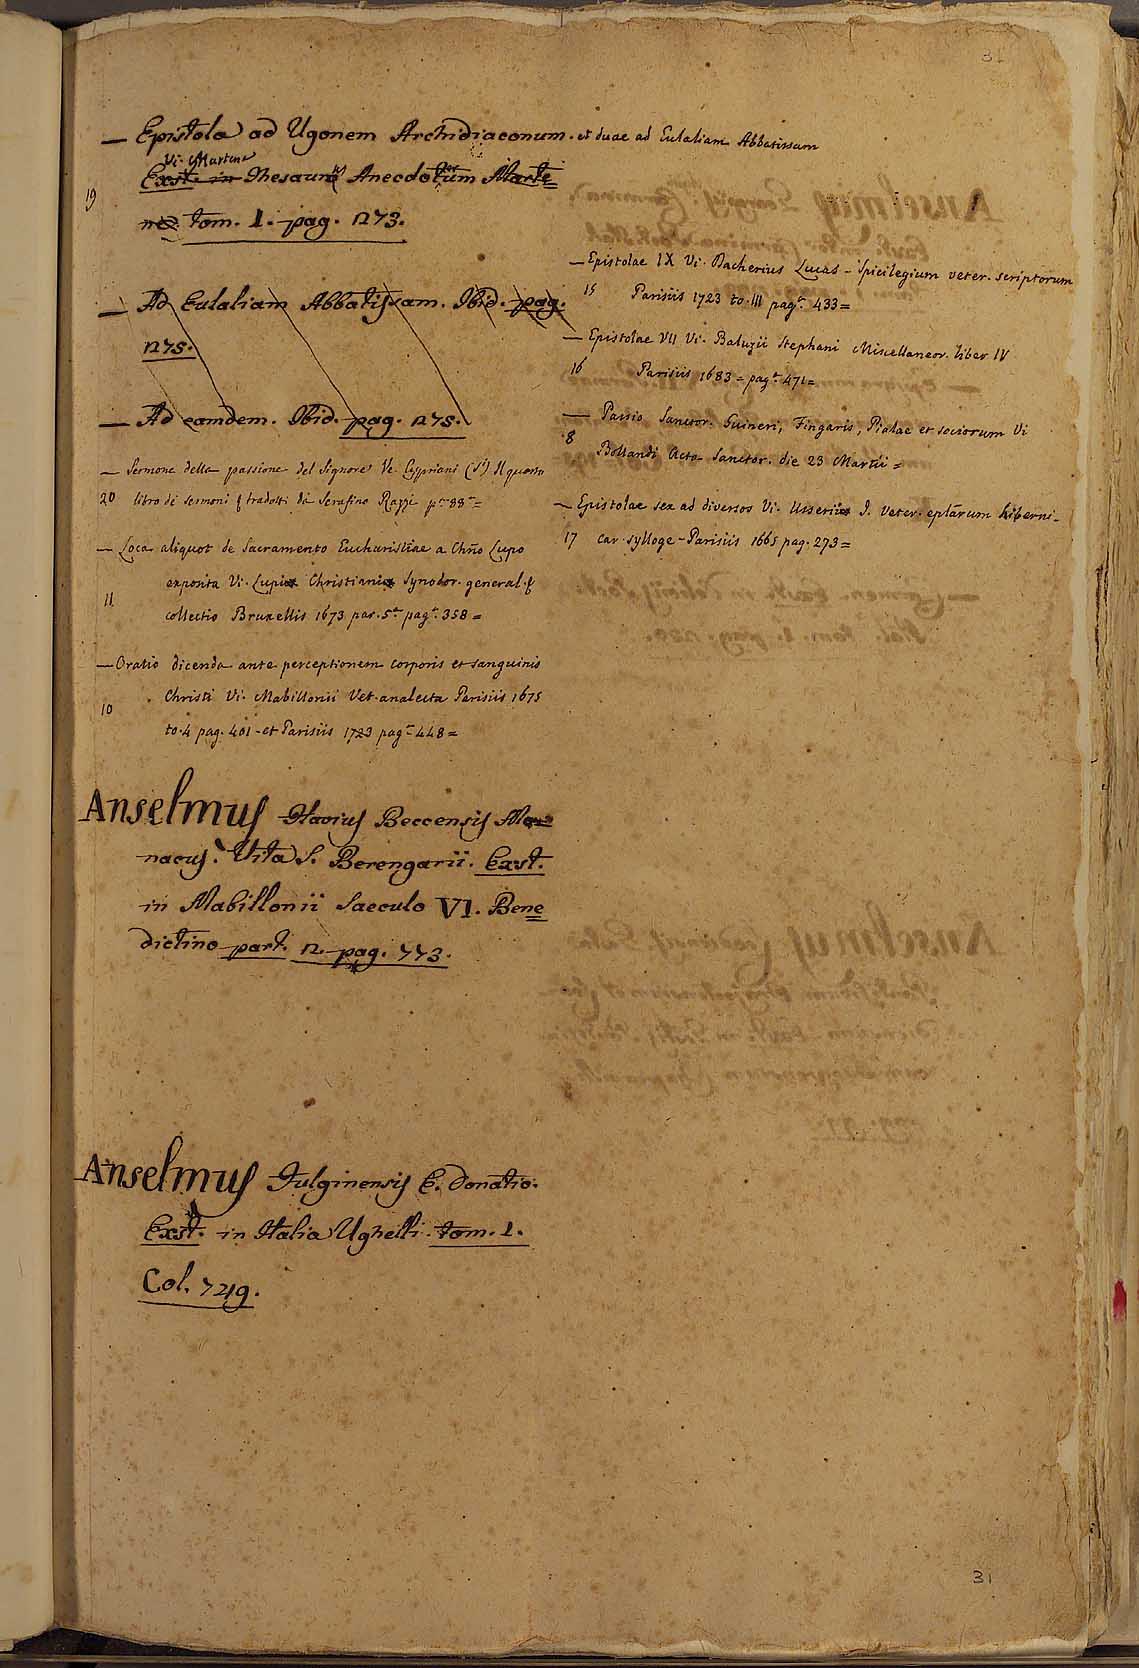 31
— Epistola ad Ugonem Archidiaconum. et duae ad Eulaliam Abbatissam
Vi. Martene
19 Exst. in Thesauro Anecdotum Marte=
ne. tom. 1. pag. 273.
— Ad Eulaliam Abbatissam. Ibid. pag.
275.
— Ad eamdem. Ibid. pag. 275.
— Sermone della passione del Signore Ve. Cypriani (S.) Il quarto
20 libro di sermoni tradotti da Serafino Razzi pa. 88 =
— Loca aliquot de Sacramento Eucharistiae a Chr̃no Lupo
exposita Vi. Lupi Christiani Synodor. general.
11 collectio Bruxellis 1673 par. 5ta pag. 358 =
— Oratio dicenda ante perceptionem corporis et sanguinis
Christi Vi. Mabillonii Vet. analecta Parisiis 1675
10 to. 4 pag. 401 - et Parisiis 1723 pag. 448 =
— Epistolae IX Vi. Dacherius Lucas - Spicilegium veter. scriptorum
15 Parisiis 1723 to. III pag. 433 =
— Epistolae VII Vi. Baluzii Stephani Miscellaneor. liber IV
16 Parisiis 1683 = pag. 471 =
— Passio Sanctor. Guineri, Fingaris, Pialae et sociorum Vi
8 Bollandi Acta Sanctor. die 23 Martii =
— Epistolae sex ad diversos Vi. Usserii J. Veter. eplārum hiberni-
17 car. sylloge - Parisiis 1665 pag. 273 =
Anselmus Flavius Beccensis Mo=
nacus. Vita S. Berengarii. Exst.
in Mabillonii Saeculo VI. Bene
dictino part. 2. pag. 773.
Anselmus Fulginensis E. donatio.
Exst. in Italia Ughelli. tom. 1.
Col. 749.
31